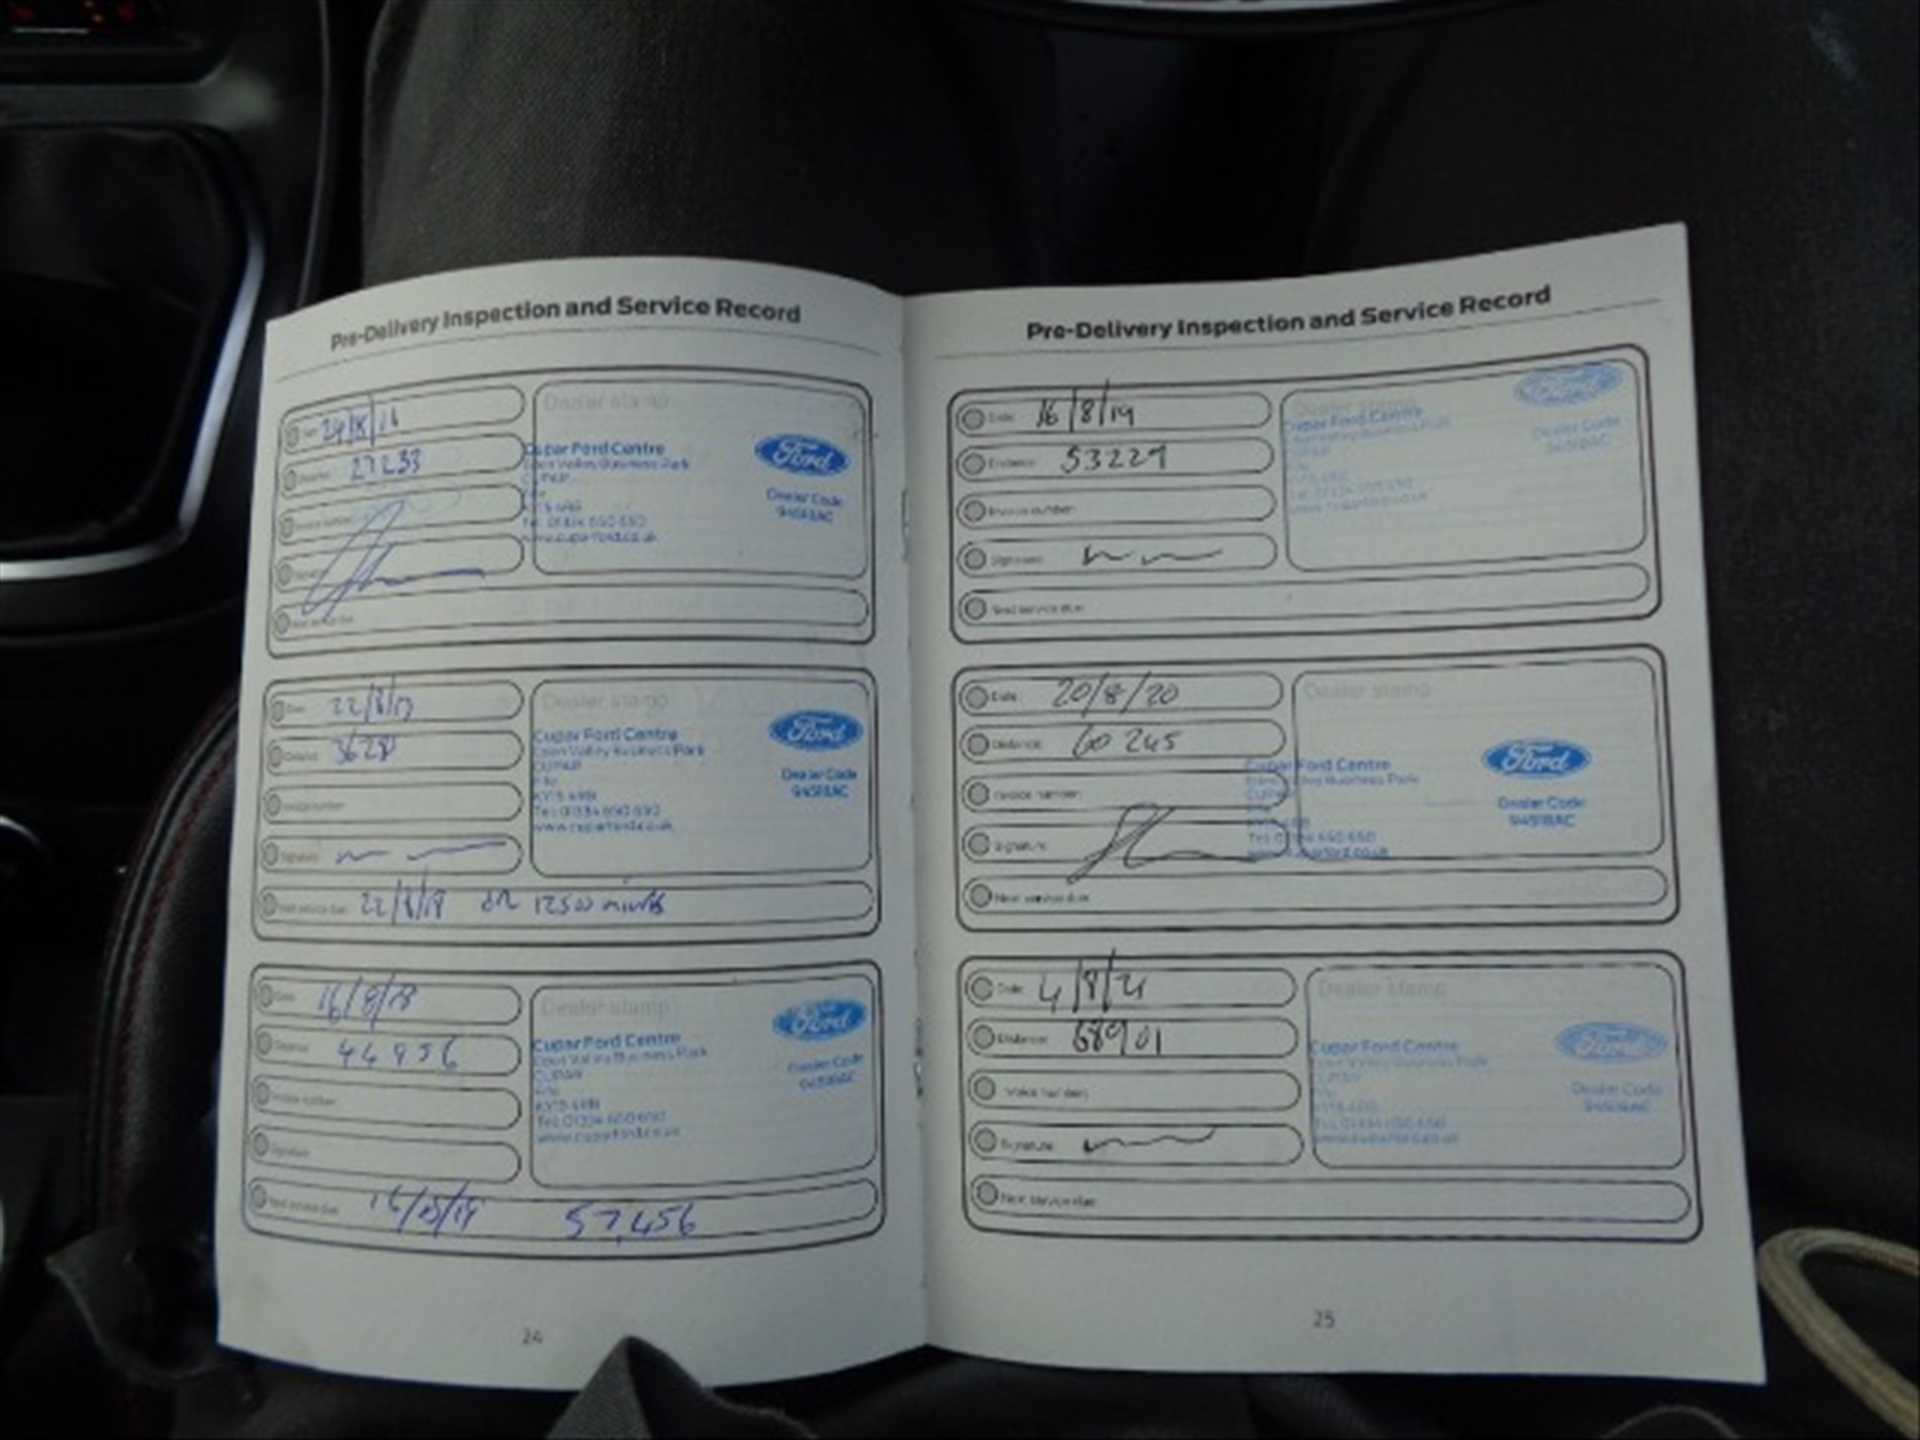 Pre-Delivery Inspection and Service Record
Dealer stamp
27233
Cupar Ford Centre
Eden Valley Business Park
CUPAR
Fife
KY15 4RB
Tel: 01334 650 650
www.cuparford.co.uk
Ford
Dealer Code
Invoice number
Next service due
Date 22/8/17
Distance
Invoice number
Signature
Next service due 22/8/18 OR 12500 miles
Dealer stamp
Cupar Ford Centre
Eden Valley Business Park
CUPAR
Fife
KY15 4RB
Tel: 01334 650 650
www.cuparford.co.uk
Ford
Dealer Code
Date 16/8/18
Distance 44956
Invoice number
Signature
Next service due 16/8/19 57,456
Dealer stamp
Cupar Ford Centre
Eden Valley Business Park
CUPAR
Fife
KY15 4RB
Tel: 01334 650 650
www.cuparford.co.uk
Ford
Dealer Code
24
Pre-Delivery Inspection and Service Record
Date: 16/8/19
Distance: 53229
Invoice number:
Signature:
Next service due:
Dealer stamp
Cupar Ford Centre
Eden Valley Business Park
Ford
Dealer Code
Date: 20/8/20
Distance: 60245
Invoice number:
Signature:
Next service due:
Dealer stamp
Cupar Ford Centre
Eden Valley Business Park
CUPAR
Fife
KY15 4RB
Tel: 01334 650 650
www.cuparford.co.uk
Ford
Dealer Code
Date: 4/8/21
Distance: 68901
Invoice number:
Signature:
Next service due:
Dealer stamp
Cupar Ford Centre
Eden Valley Business Park
CUPAR
Fife
KY15 4RB
Tel: 01334 650 650
www.cuparford.co.uk
Ford
Dealer Code
25